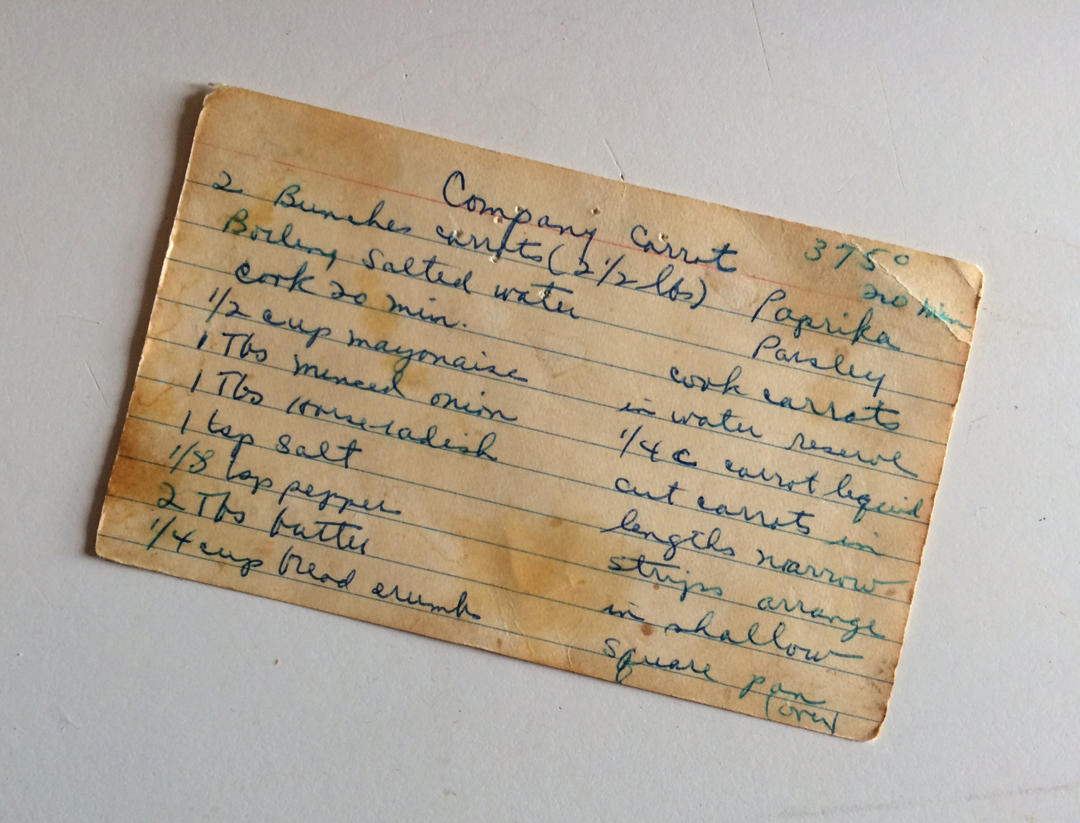 Company Carrot
375°
20 min
2 Bunches carrots (2 1/2 lbs)
Boiling Salted water
cook 20 min.
1/2 cup mayonaise
1 Tbs minced onion
1 Tbs horseradish
1 tsp salt
1/8 tsp pepper
2 Tbs butter
1/4 cup bread crumbs
Paprika
Parsley
cook carrots
in water reserve
1/4 c carrot liquid
cut carrots in
lengths narrow
strips arrange
in shallow
square pan
(over)